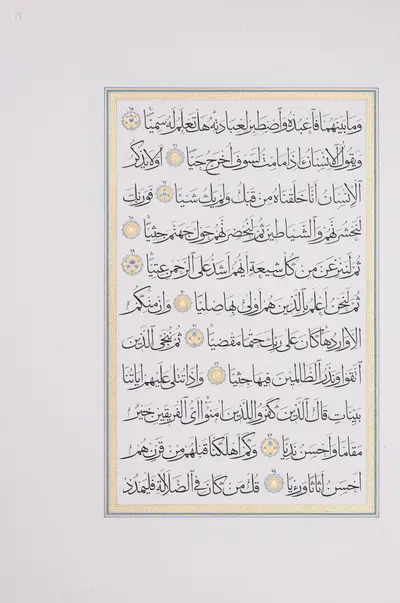 وما بينهما فاعبده واصطبر لعبادته هل تعلم له سميا ٦٥
ويقول الانسان ءاذا ما مت لسوف اخرج حيا ٦٦ اولا يذكر
الانسان انا خلقناه من قبل ولم يك شيئا ٦٧ فوربك
لنحشرنهم والشياطين ثم لنحضرنهم حول جهنم جثيا ٦٨
ثم لننزعن من كل شيعة ايهم اشد على الرحمن عتيا ٦٩
ثم لنحن اعلم بالذين هم اولى بها صليا ٧٠ وان منكم
الا واردها كان على ربك حتما مقضيا ٧١ ثم ننجي الذين
اتقوا ونذر الظالمين فيها جثيا ٧٢ واذا تتلى عليهم اياتنا
بينات قال الذين كفروا للذين امنوا اي الفريقين خير
مقاما واحسن نديا ٧٣ وكم اهلكنا قبلهم من قرن هم
احسن اثاثا ورءيا ٧٤ قل من كان في الضلالة فليمدد